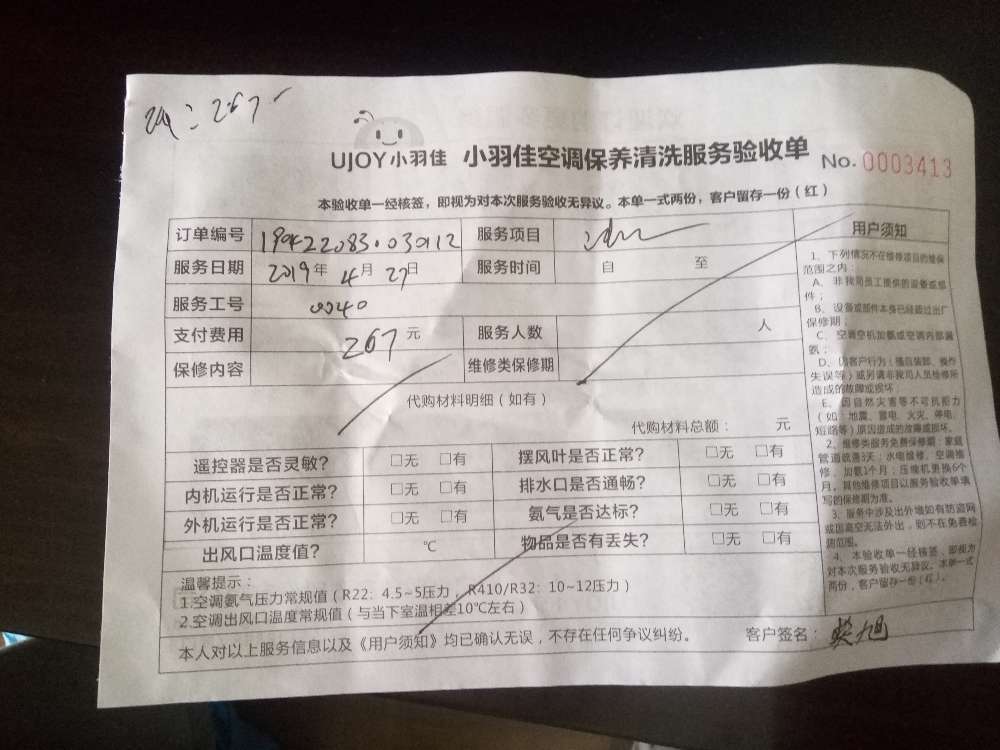 267
UJOY小羽佳 小羽佳空调保养清洗服务验收单 No. 0003413
本验收单一经核签，即视为对本次服务验收无异议。本单一式两份，客户留存一份（红）
订单编号 服务项目
服务日期 2019年 4月 27日 服务时间 自 至
服务工号 0040
支付费用 267 元 服务人数 人
保修内容 维修类保修期
代购材料明细（如有）
代购材料总额： 元
遥控器是否灵敏? □无 □有 摆风叶是否正常? □无 □有
内机运行是否正常? □无 □有 排水口是否通畅? □无 □有
外机运行是否正常? □无 □有 氨气是否达标? □无 □有
出风口温度值? ℃ 物品是否有丢失? □无 □有
温馨提示：
1.空调氨气压力常规值（R22：4.5~5压力，R410/R32：10~12压力）
2.空调出风口温度常规值（与当下室温相差10℃左右）
本人对以上服务信息以及《用户须知》均已确认无误，不存在任何争议纠纷。 客户签名：
用户须知
1、下列情况不在维修项目的维保
范围之内：
A、非我司员工提供的设备或部
件；
B、设备或部件本身已经超过出厂
保修期；
C、空调空机加氨或空调内部漏
氨；
D、因客户行为（擅自装卸、操作
失误等）或另请非我司人员检修所
造成的故障或损坏；
E、因自然灾害等不可抗拒力
（如：地震、雷电、火灾、停电、
短路等）原因造成的故障或损坏。
2、维修类服务免费保修期：家庭
管道疏通3天；水电维修、空调维
修、加氨1个月；压缩机更换6个
月。其他维修项目以服务验收单填
写的保修期为准。
3、服务中涉及出外墙如有防盗网
或因高空无法外出，则不在免费检
测范围。
4、本验收单一经核签，即视为
对本次服务验收无异议。本单一式
两份，客户留存一份（红）。